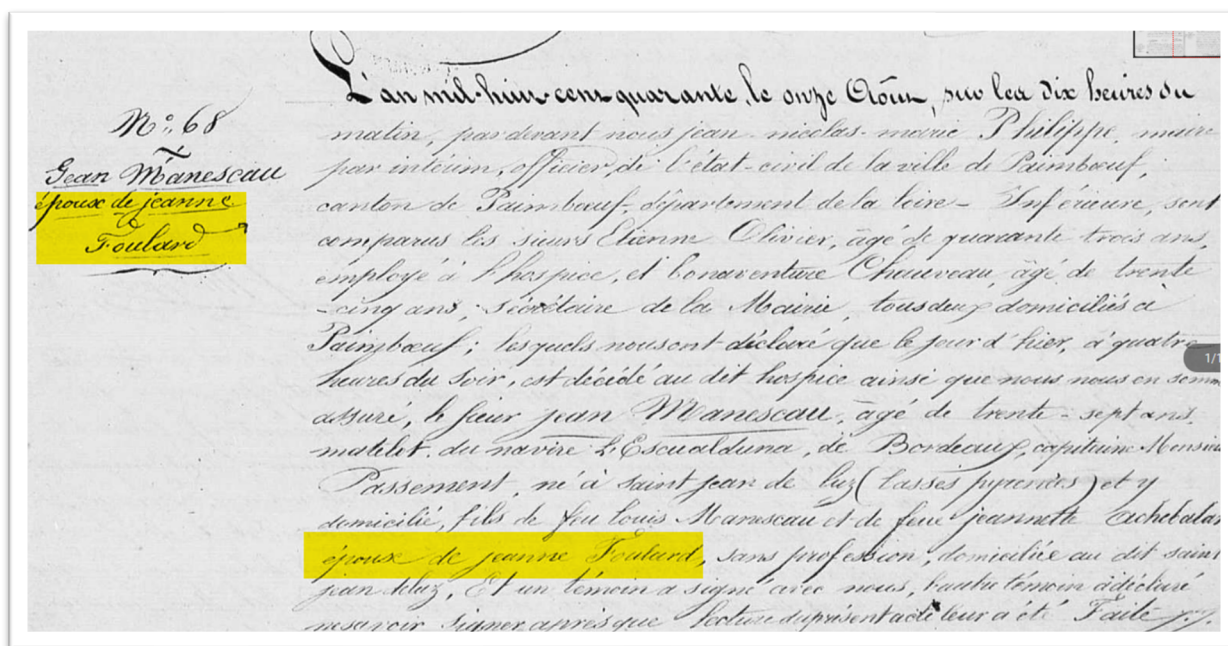 N.º 68
Jean Manescau
époux de jeanne
Foulard
L'an mil-huit-cent quarante, le onze Août, sur les dix heures du
matin, pardevant nous jean-nicolas-marie Philippe, maire
par intérim, officier de l'état-civil de la ville de Paimbœuf,
canton de Paimbœuf, département de la loire-Inférieure, sont
comparus les sieurs Etienne Olivier, âgé de quarante trois ans,
employé à l'hospice, et bonaventure Chauveau, âgé de trente
-cinq ans, sécrétaire de la Mairie, tous deux domiciliés à
Paimbœuf; lesquels nous ont déclaré que le jour d'hier, à quatre
heures du soir, est décédé au dit hospice ainsi que nous nous en somm
assuré, le sieur jean Manescau, âgé de trente-sept ans,
matelot du navire L'Escualduna, de Bordeaux, capitaine
Passement, né à saint jean de luz (basses pyrénées) et y
domicilié, fils de feu louis Manescau et de feue jeannette
époux de jeanne Foulard, sans profession, domiciliée au dit saint
jean deluz, Et un témoin a signé avec nous, l'autre témoin a déclaré
ne savoir signer après que lecture du présent acte leur a été Faite
1/1